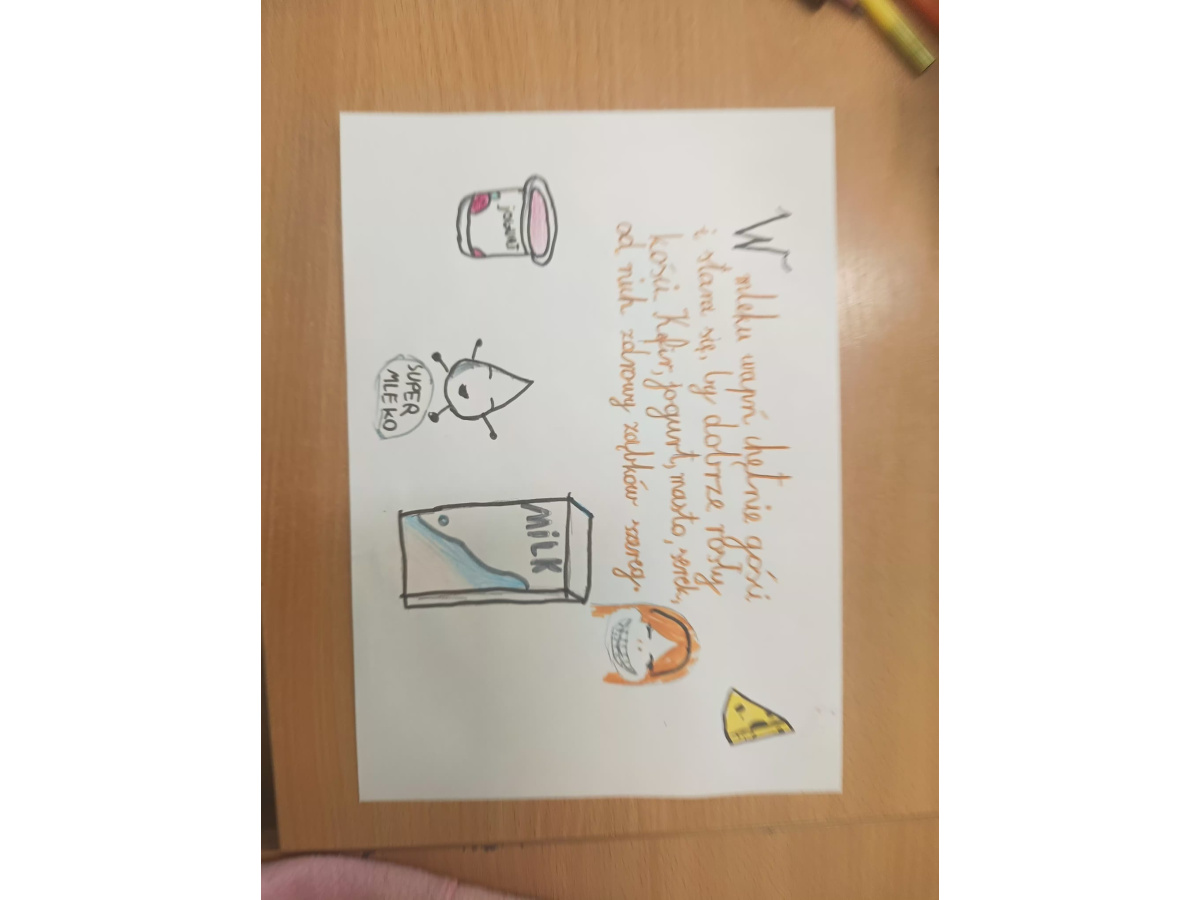 W mleku wapń chętnie gości
i stara się, by dobrze rosły
kości Kefir, jogurt, masło, serek,
od nich zdrowy ząbków szereg.
jogurt
SUPER
MLEKO
MILK